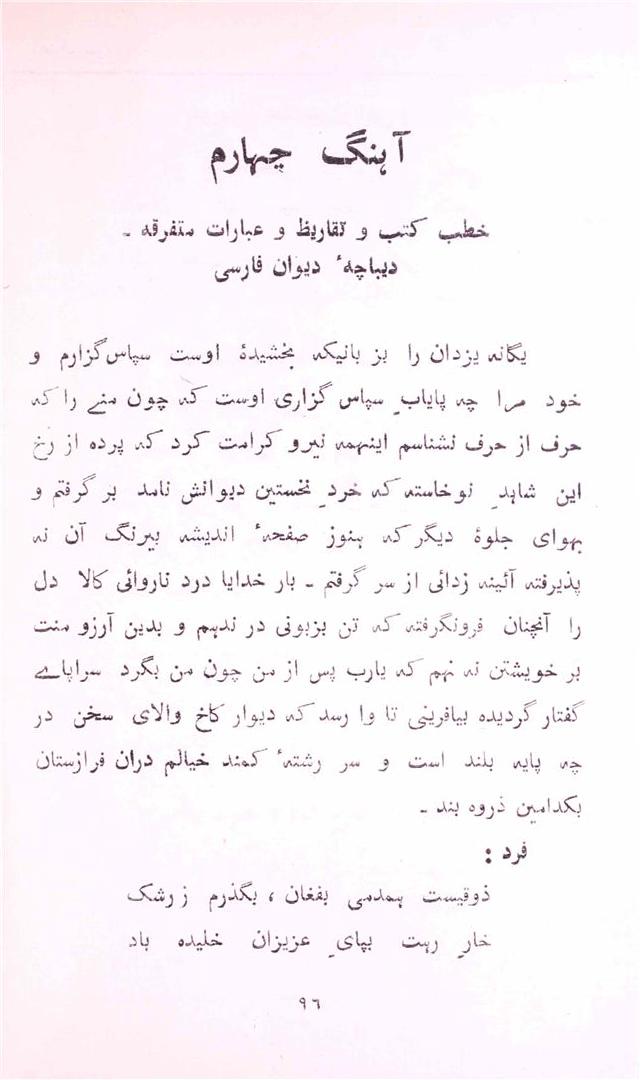 آہنگ چہارم
خطب کتب و تقاریظ و عبارات متفرقہ ۔
دیباچۂ دیوان فارسی
یگانہ یزدان را بز بانیکہ بخشیدۂ اوست سپاس گزارم و
خود مرا چہ پایابِ سپاس گزاری اوست کہ چون منے را کہ
حرف از حرف نشناسم اینہمہ نیرو کرامت کرد کہ پردہ از رخ
این شاہدِ نوخاستہ کہ خردِ نخستین دیوانش نامد بر گرفتم و
بہوای جلوۂ دیگر کہ ہنوز صفحۂ اندیشہ بیرنگ آن نہ
پذیرفتہ آئینہ زدائی از سر گرفتم ۔ بار خدایا درد ناروائی کالا دل
را آنچنان فرونگرفتہ کہ تن بزبونی در ندہم و بدین آرزو منت
بر خویشتن نہ نہم کہ یارب پس از من چون من بگرد سراپاے
گفتار گردیدہ بیافرینی تا وا رسد کہ دیوار کاخ والای سخن در
چہ پایہ بلند است و سر رشتۂ کمند خیالم دران فرازستان
بکدامین ذروہ بند ۔
فرد :
ذوقیست ہمدمی بفغان ، بگذرم ز رشک
خارِ رہت بپایِ عزیزان خلیدہ باد
۹۶